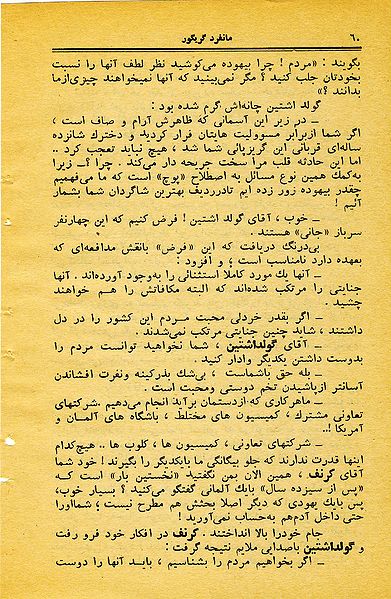 ۶۰ مانفرد گریگور
بگویند : «مردم ! چرا بیهوده می‌کوشید نظر لطف آنها را نسبت
بخودتان جلب کنید ؟ مگر نمی‌بینید که آنها نمیخواهند چیزی‌ازما
بدانند ؟»
گولد اشتین چانه‌اش گرم شده بود :
ــ در زیر این آسمانی که ظاهرش آرام و صاف است ،
اگر شما ازبرابر مسوولیت هایتان فرار کردید و دخترك شانزده
ساله‌ای قربانی این گریزپائی شما شد ، هیچ نباید تعجب کرد ..
اما این حادثه قلب مرا سخت جریحه دار می‌کند . چرا ؟ــ زیرا
به‌کمك همین نوع مسائل به اصطلاح «پوچ» است که ما می‌فهمیم
چقدر بیهوده زور زده ایم تادرردیف بهترین شاگردان شما بشمار
آئیم !
ــ خوب ، آقای گولد اشتین ! فرض کنیم که این چهارنفر
سرباز «جانی» هستند .
بی‌درنگ دریافت که این «فرض» بانقش مدافعه‌ای که
بعهده دارد نامناسب است ؛ و افزود :
ــ آنها یك مورد کاملا استثنائی را به‌وجود آورده‌اند . آنها
جنایتی را مرتکب شده‌اند که البته مکافاتش را هـم خواهند
چشید .
ــ اگر بقدر خردلی محبت مـردم این کشور را در دل
داشتند ، شاید چنین جنایتی مرتکب نمی‌شدند .
ــ آقای گولداشتین ، شما نخواهید توانست مردم را
بدوست داشتن یکدیگر وادار کنید .
ــ بله حق باشماست ، بی‌شك بذرکینه ونفرت افشاندن
آسانتر ازپاشیدن تخم دوستی ومحبت است .
ــ ماهرکاری که ازدستمان برآید انجام می‌دهیم .شرکتهای
تعاونی مشترك ، کمیسیون های مختلط ، باشگاه های آلمان و
آمریکا !..
ــ شرکتهای تعاونی ، کمیسیون ها ، کلوب ها .. هیچ‌کدام
اینها قدرت ندارند که جلو بیگانگی ما بایکدیگر را بگیرند ! خود شما
آقای کرنف ، همین الان بمن نگفتید «نخستین بار» است کـه
«پس از سیزده سال» بایك آلمانی گفتگو می‌کنید ؟ بسیار خوب،
پس بایك یهودی که دیگر اصلا بحثش هم مطرح نیست ؛ شمااورا
حتی داخل آدم‌هم به‌حساب نمی‌آورید !
جام خودرا بالا انداختند . کرنف در افکار خود فرو رفت
و گولداشتین باصدایی ملایم نتیجه گرفت :
ــ اگر بخواهیم مردم را بشناسیم ، بایـد آنها را دوست